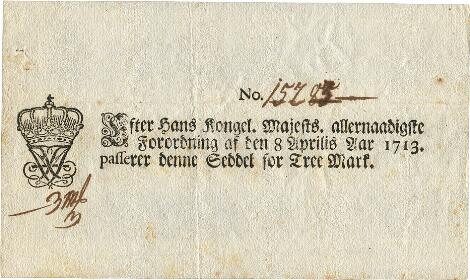 No. 15285
Efter Hans Kongel. Majests. allernaadigste
Forordning af den 8 Aprilis Aar 1713.
passerer denne Seddel for Tree Mark.
3 mk